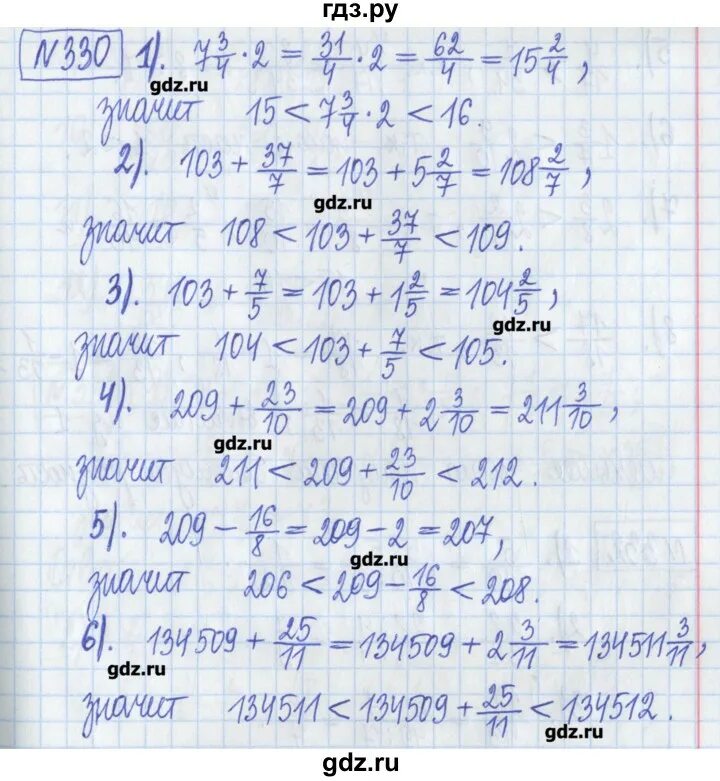 гдз.ру
N330 1). 7 3/4 · 2 = 31/4 · 2 = 62/4 = 15 2/4,
gdz.ru
значит 15 < 7 3/4 · 2 < 16.
2). 103 + 37/7 = 103 + 5 2/7 = 108 2/7,
gdz.ru
значит 108 < 103 + 37/7 < 109.
3). 103 + 7/5 = 103 + 1 2/5 = 104 2/5,
gdz.ru
значит 104 < 103 + 7/5 < 105.
4). 209 + 23/10 = 209 + 2 3/10 = 211 3/10,
gdz.ru
значит 211 < 209 + 23/10 < 212.
5). 209 - 16/8 = 209 - 2 = 207,
gdz.ru
значит 206 < 209 - 16/8 < 208.
6). 134509 + 25/11 = 134509 + 2 3/11 = 134511 3/11,
gdz.ru
значит 134511 < 134509 + 25/11 < 134512.
gdz.ru
gdz.ru